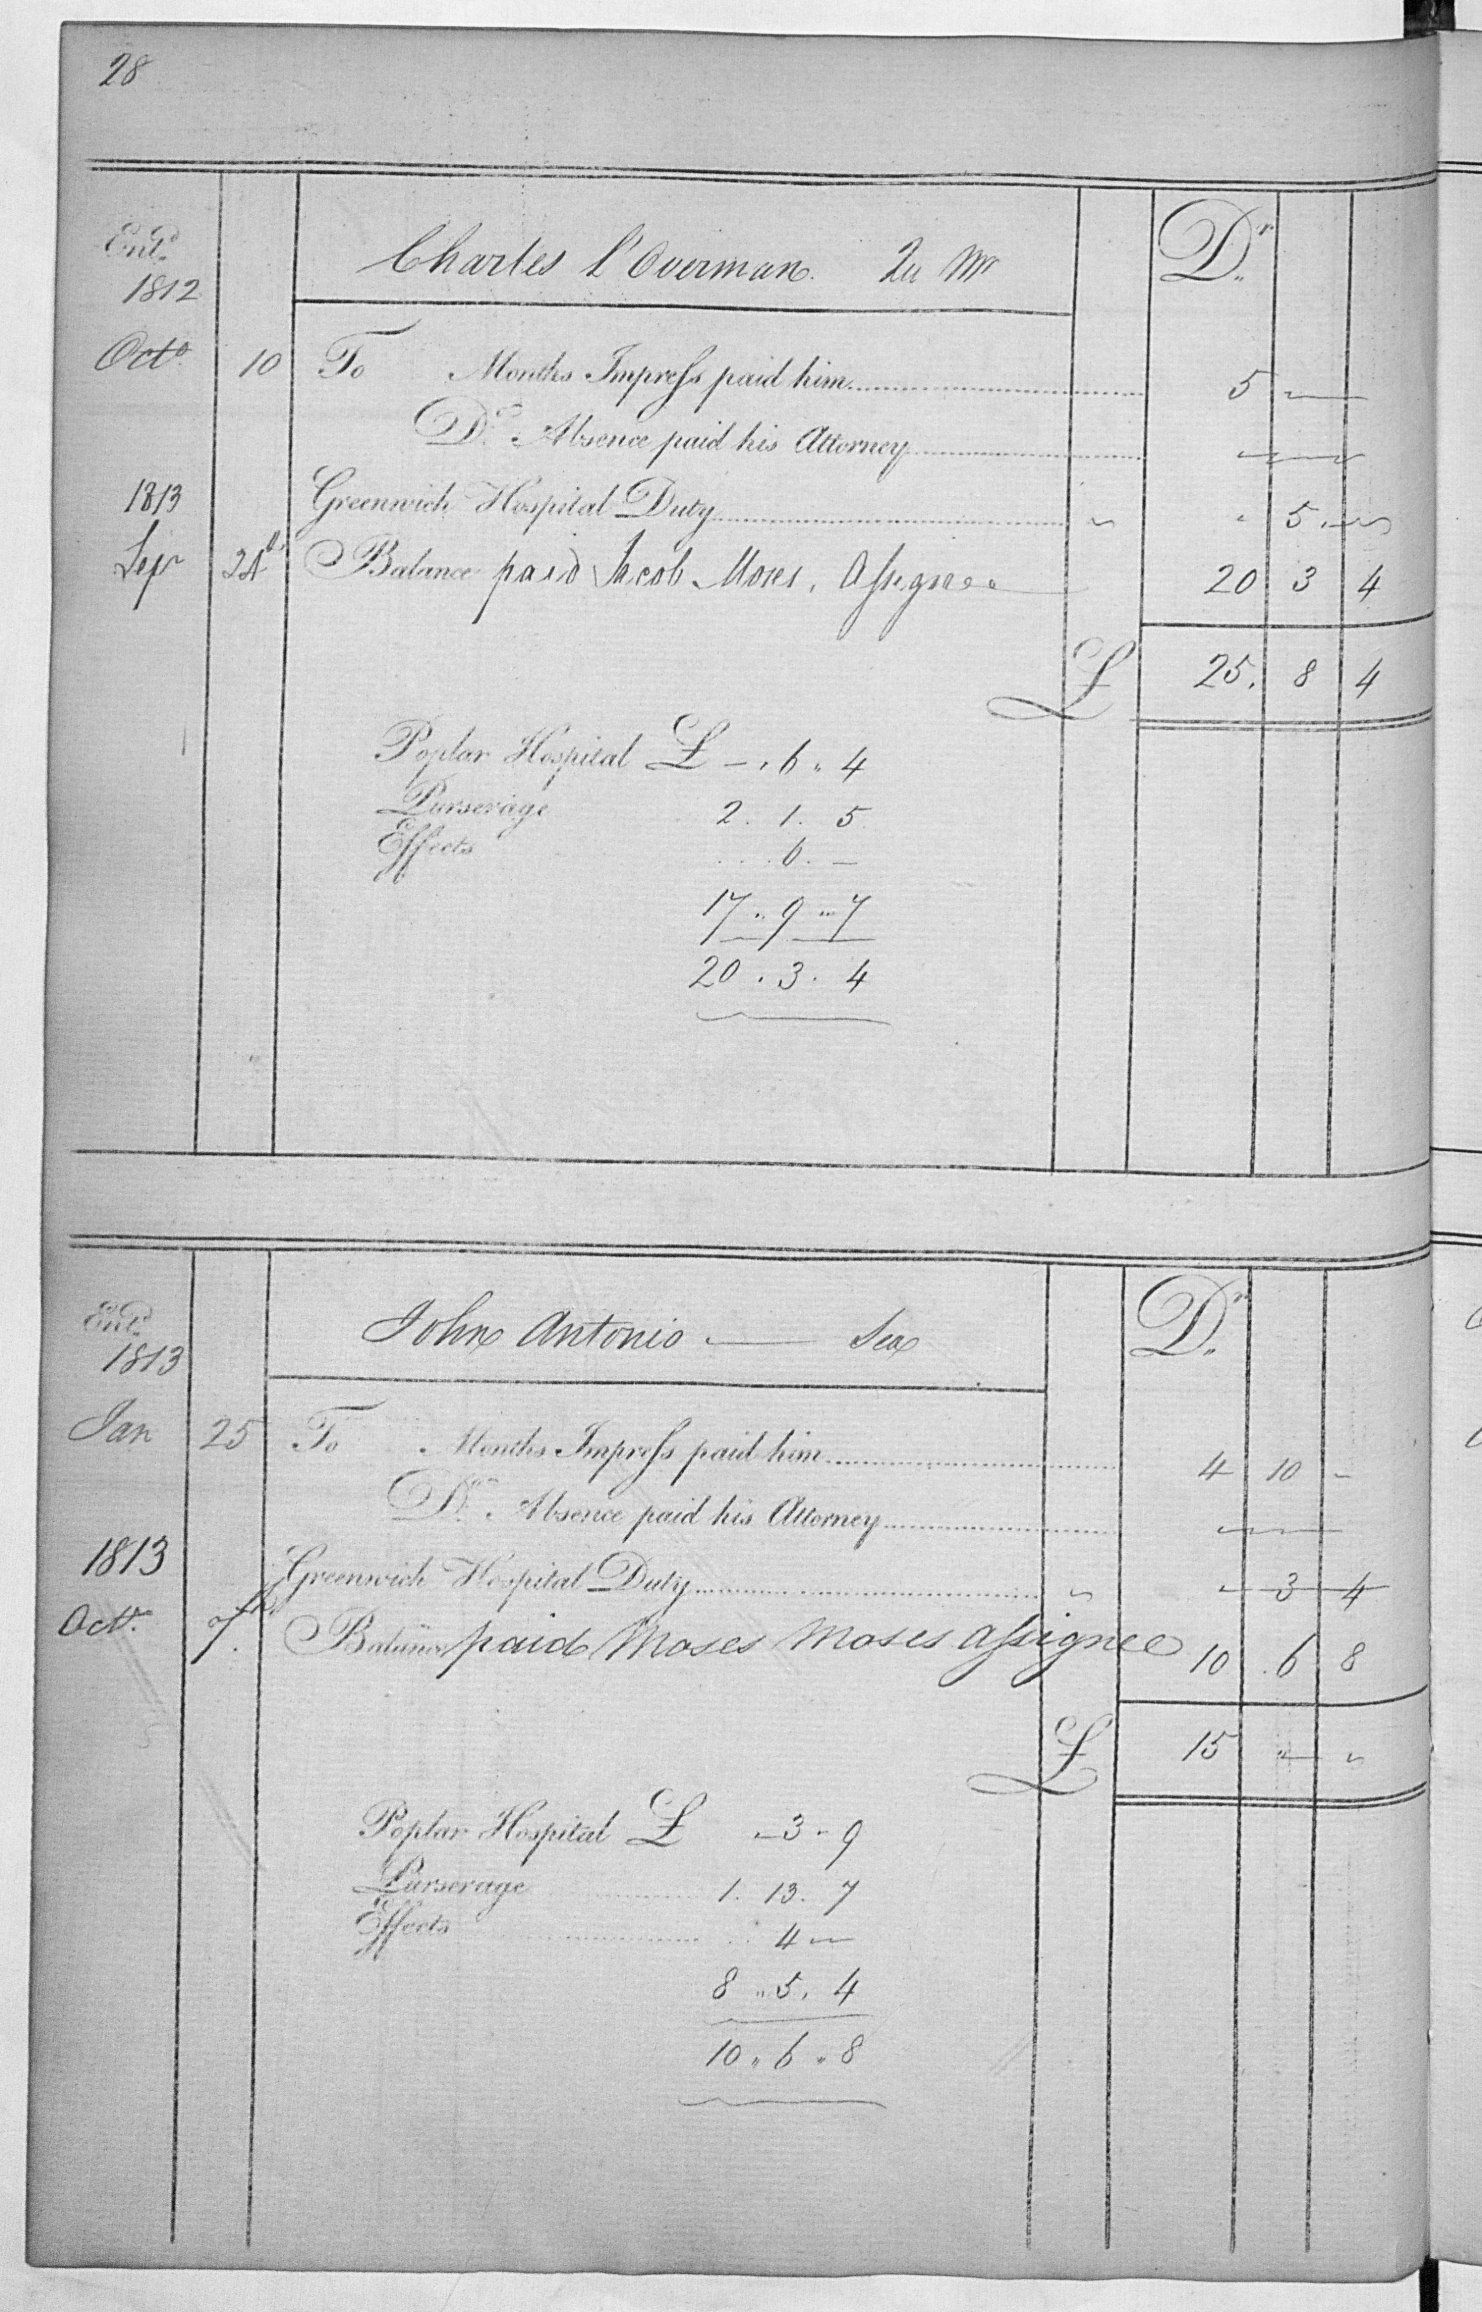 28
Ent.d
1812
Charles l'Overman. Qu Mr
Dr
Octo 10 To Months Impress paid him 5 —
Do Absence paid his Attorney
1813 Greenwich Hospital Duty " 5 "
Sepr 24th Balance paid Jacob Moses, Assignee 20 3 4
£ 25. 8 4
Poplar Hospital £ — . 6 " 4
Purserage 2. 1. 5
Effects 6. —
17 " 9 " 7
20 . 3 . 4
Ent.d
1813
John Antonio — Sea
Dr
Jan 25 To Months Impress paid him 4 10 -
Do Absence paid his Attorney
1813 Greenwich Hospital Duty " 3 4
Octr 7th Balance paid Moses Moses Assignee 10 . 6 8
£ 15 " "
Poplar Hospital £ " 3 " 9
Purserage 1. 13. 7
Effects 4 —
8 " 5. 4
10 " 6 " 8